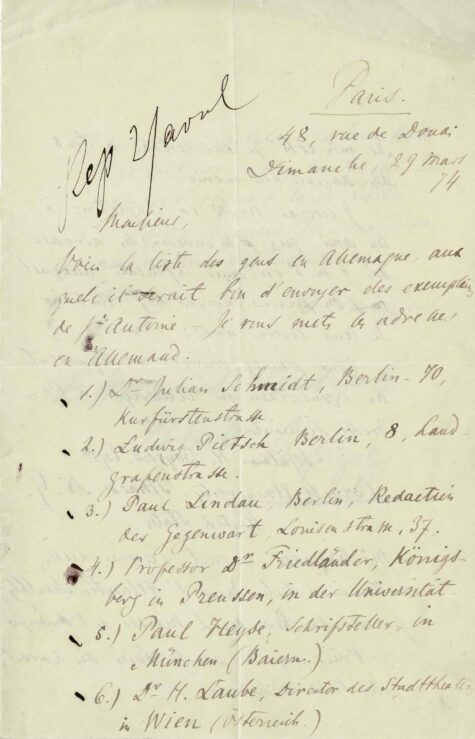 Paris.
48, rue de Douai
Dimanche, 29 mars
74
Rep 2/avril
Monsieur,
Voici la liste des gens en Allemagne aux
quels il serait bon d'envoyer des exemplaires
de St Antoine - Je vous mets les adresses
en Allemand.
1.) Dr Julian Schmidt, Berlin. 70,
Kurfürstenstrasse.
2.) Ludwig Pietsch Berlin, 8, Land-
grafenstrasse.
3.) Paul Lindau Berlin, Redaction
der Gegenwart, Louisenstrasse, 37.
4.) Professor Dr Friedländer, Königs-
berg in Preussen, in der Universität.
5.) Paul Heyse, Schriftsteller, in
München (Baiern.)
6.) Dr H. Laube, Director des Stadttheaters
in Wien (Österreich.)